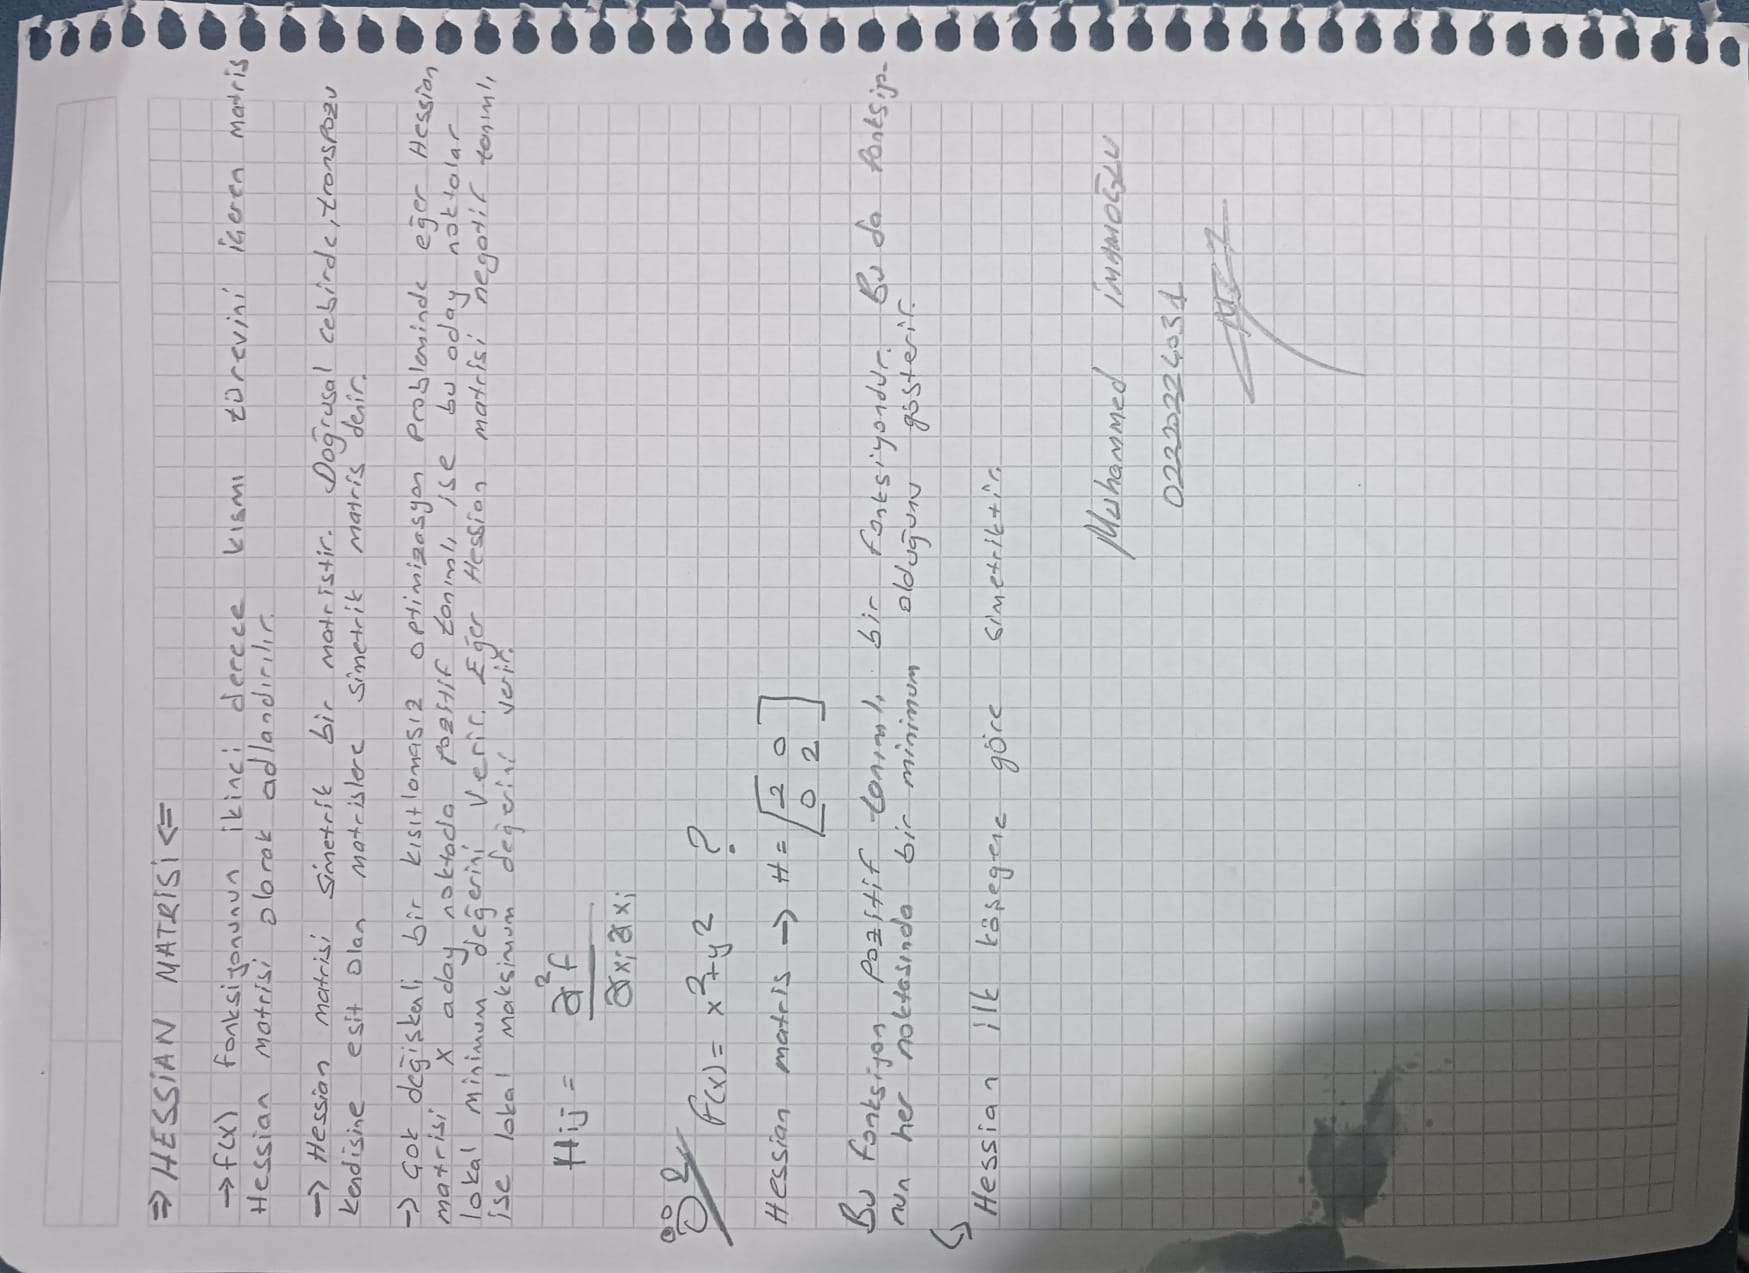 ⇒ HESSİAN MATRİSİ <=
→ f(x) fonksiyonunun ikinci derece kısmı türevini içeren matris
Hessian matrisi olarak adlandırılır.
→ Hessian matrisi simetrik bir matristir. Doğrusal cebirde, transpozu
kendisine eşit olan matrislere simetrik matris denir.
→ Çok değişkenli bir kısıtlamasız optimizasyon probleminde eğer Hessian
matrisi x aday noktada pozitif tanımlı ise bu aday noktalar
lokal minimum değerini verir. Eğer Hessian matrisi negatif tanımlı
ise lokal maksimum değerini verir.
Hij = ∂²f
∂xi∂xj
ÖR/ f(x) = x²+y² ?
Hessian matris → H = [2 0
0 2]
Bu fonksiyon pozitif tanımlı bir fonksiyondur. Bu da fonksiyo-
nun her noktasında bir minimum olduğunu gösterir.
↳ Hessian ilk köşegene göre simetriktir.
Muhammed İMAMOĞLU
02220224031